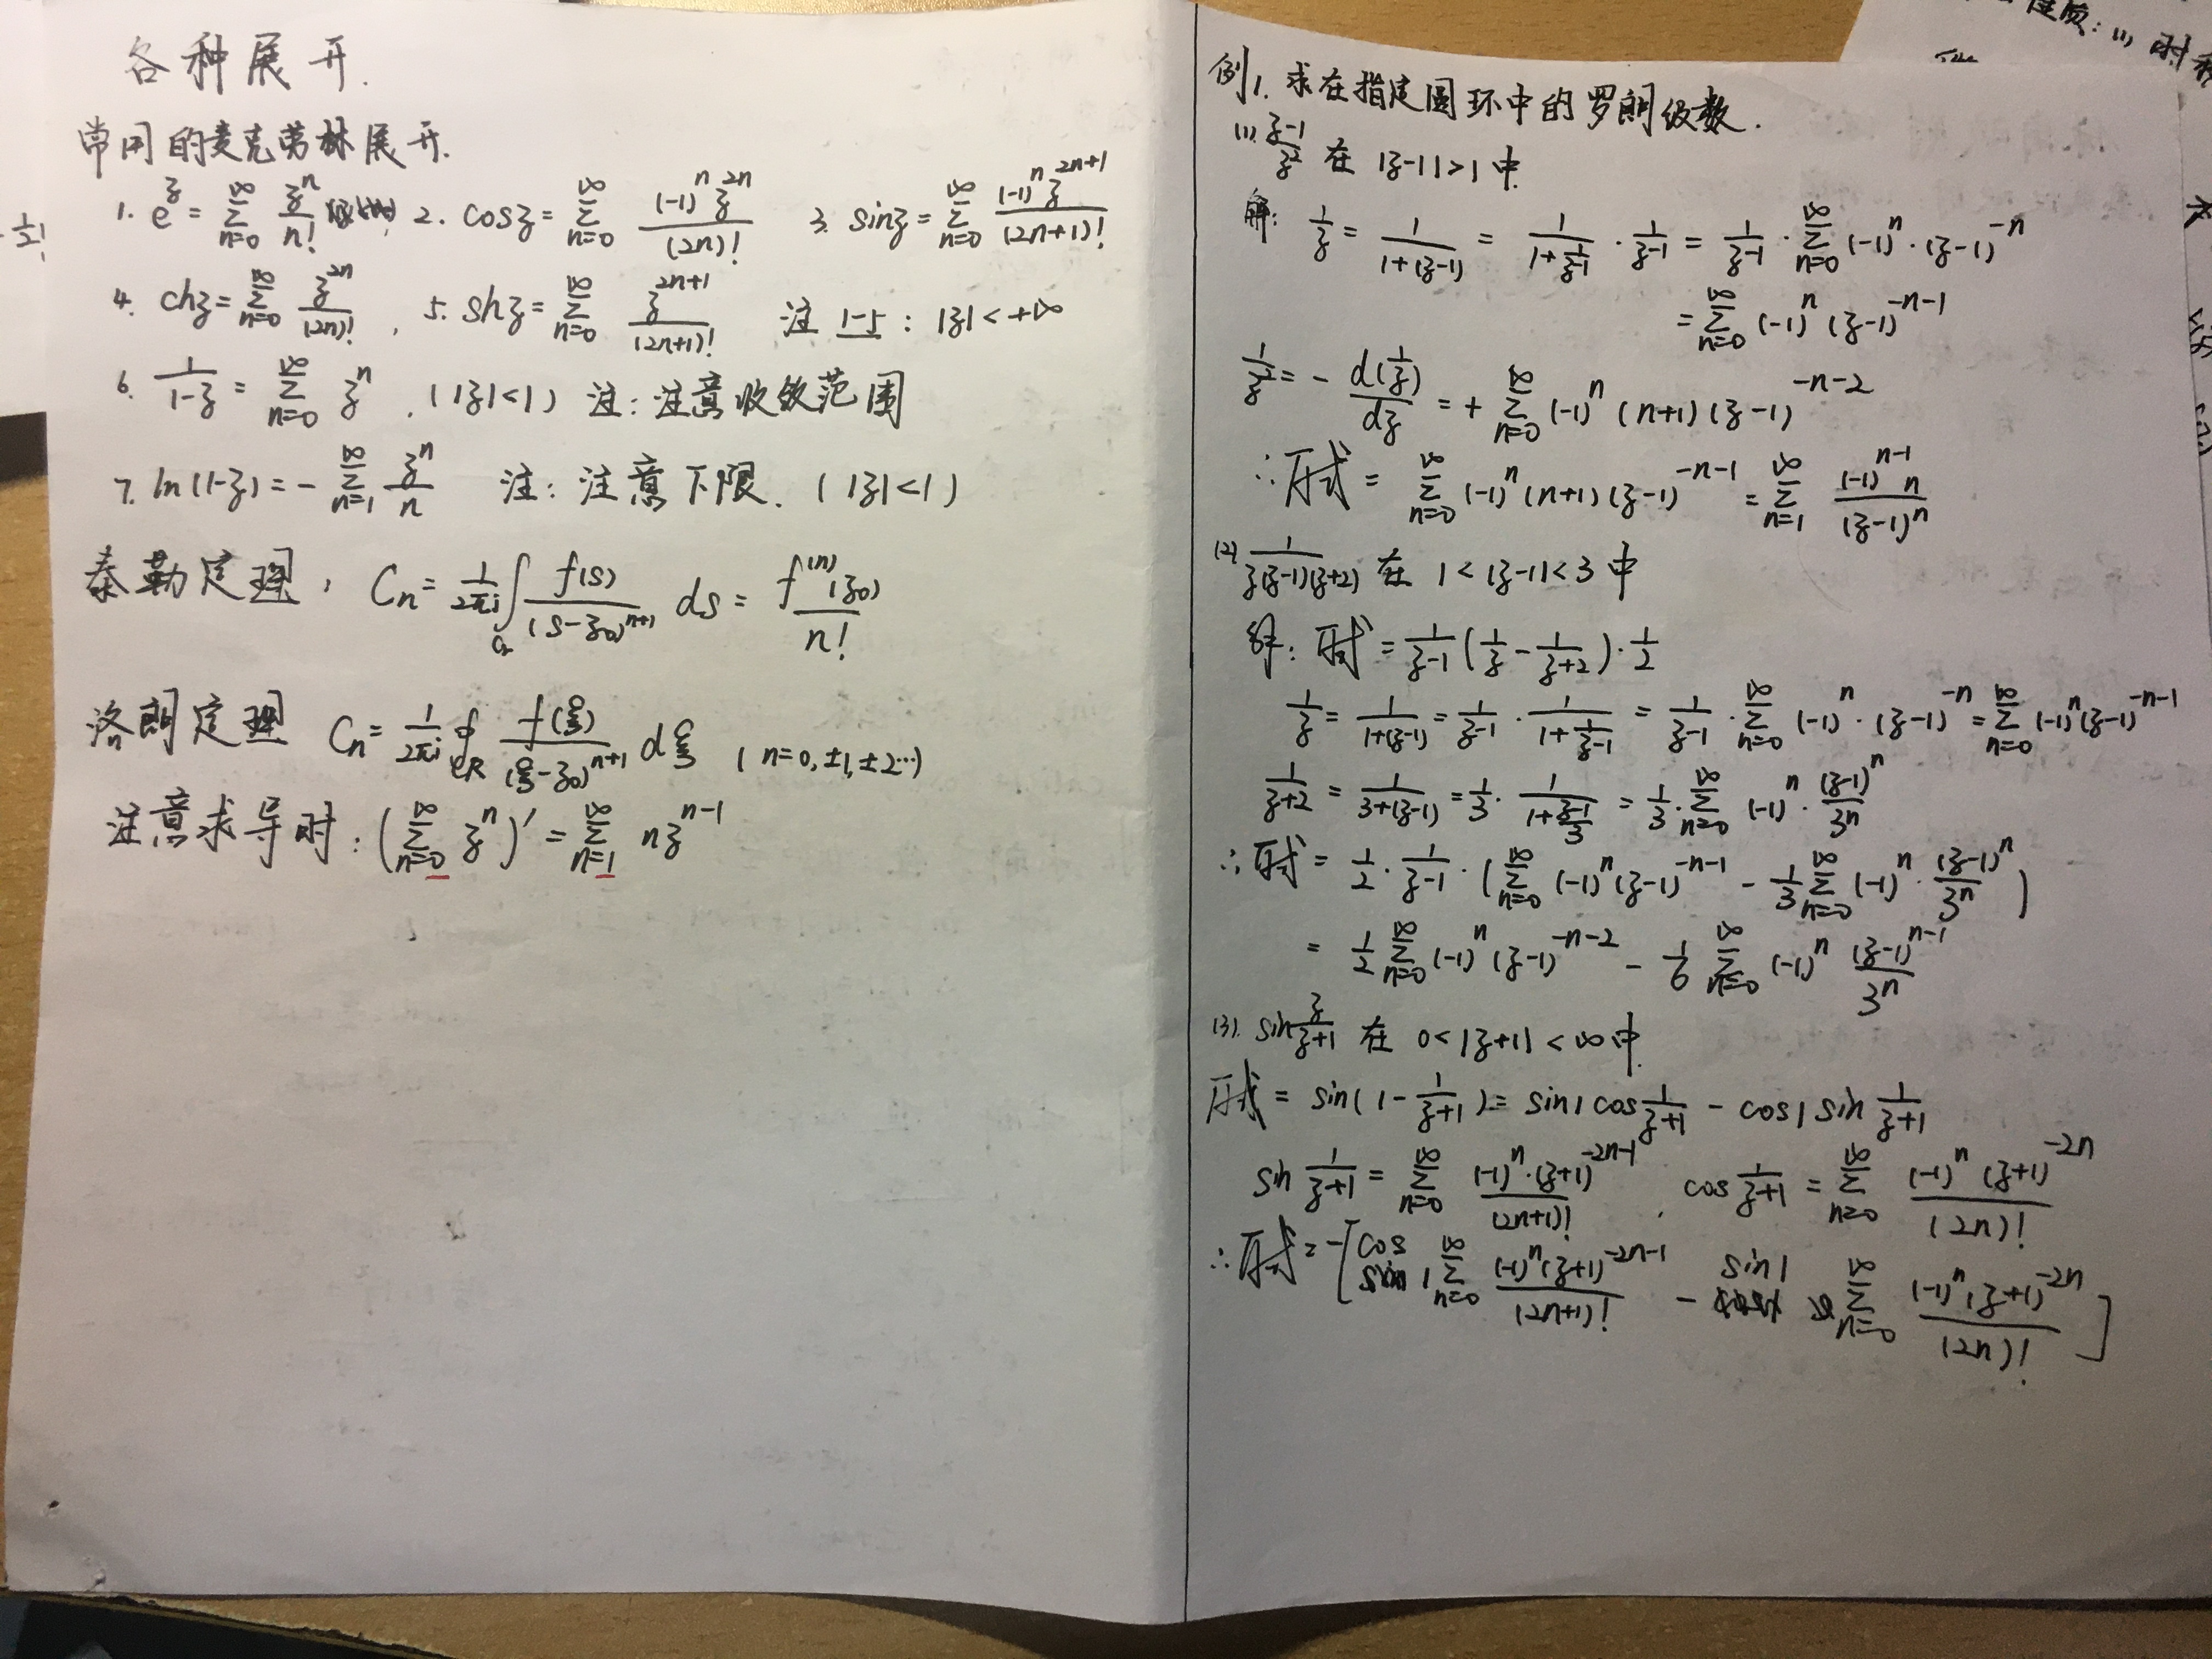 各种展开.
常用的麦克劳林展开.
1. e^z = \sum_{n=0}^{∞} \frac{z^n}{n!} , 2. cosz = \sum_{n=0}^{∞} \frac{(-1)^n z^{2n}}{(2n)!} 3. sinz = \sum_{n=0}^{∞} \frac{(-1)^n z^{2n+1}}{(2n+1)!}
4. chz = \sum_{n=0}^{∞} \frac{z^{2n}}{(2n)!} , 5. shz = \sum_{n=0}^{∞} \frac{z^{2n+1}}{(2n+1)!} 注 1-5 : |z| < +∞
6. \frac{1}{1-z} = \sum_{n=0}^{∞} z^n . (|z|<1) 注: 注意收敛范围
7. ln(1-z) = - \sum_{n=1}^{∞} \frac{z^n}{n} 注: 注意下限. (|z|<1)
泰勒定理, C_n = \frac{1}{2πi} \int_{C_r} \frac{f(s)}{(s-z_0)^{n+1}} ds = \frac{f^{(n)}(z_0)}{n!}
洛朗定理 C_n = \frac{1}{2πi} \oint_{C_R} \frac{f(ξ)}{(ξ-z_0)^{n+1}} dξ (n=0, ±1, ±2…)
注意求导时: (\sum_{n=0}^{∞} z^n)' = \sum_{n=1}^{∞} n z^{n-1}
例1. 求在指定圆环中的罗朗级数.
(1). \frac{z-1}{z^2} 在 |z-1|>1 中.
解: \frac{1}{z} = \frac{1}{1+(z-1)} = \frac{1}{1+\frac{1}{z-1}} · \frac{1}{z-1} = \frac{1}{z-1} · \sum_{n=0}^{∞} (-1)^n · (z-1)^{-n}
= \sum_{n=0}^{∞} (-1)^n (z-1)^{-n-1}
\frac{1}{z^2} = - \frac{d(\frac{1}{z})}{dz} = + \sum_{n=0}^{∞} (-1)^n (n+1) (z-1)^{-n-2}
∴ 原式 = \sum_{n=0}^{∞} (-1)^n (n+1) (z-1)^{-n-1} = \sum_{n=1}^{∞} \frac{(-1)^{n-1} n}{(z-1)^n}
(2) \frac{1}{z(z-1)(z+2)} 在 1<|z-1|<3 中
解: 原式 = \frac{1}{z-1} (\frac{1}{z} - \frac{1}{z+2}) · \frac{1}{2}
\frac{1}{z} = \frac{1}{1+(z-1)} = \frac{1}{z-1} · \frac{1}{1+\frac{1}{z-1}} = \frac{1}{z-1} · \sum_{n=0}^{∞} (-1)^n · (z-1)^{-n} = \sum_{n=0}^{∞} (-1)^n (z-1)^{-n-1}
\frac{1}{z+2} = \frac{1}{3+(z-1)} = \frac{1}{3} · \frac{1}{1+\frac{z-1}{3}} = \frac{1}{3} · \sum_{n=0}^{∞} (-1)^n · \frac{(z-1)^n}{3^n}
∴ 原式 = \frac{1}{2} · \frac{1}{z-1} · (\sum_{n=0}^{∞} (-1)^n (z-1)^{-n-1} - \frac{1}{3} \sum_{n=0}^{∞} (-1)^n · \frac{(z-1)^n}{3^n})
= \frac{1}{2} \sum_{n=0}^{∞} (-1)^n (z-1)^{-n-2} - \frac{1}{6} \sum_{n=0}^{∞} (-1)^n \frac{(z-1)^{n-1}}{3^n}
(3). sin\frac{z}{z+1} 在 0<|z+1|<∞ 中.
原式 = sin(1-\frac{1}{z+1}) = sin1 cos\frac{1}{z+1} - cos1 sin\frac{1}{z+1}
sin\frac{1}{z+1} = \sum_{n=0}^{∞} \frac{(-1)^n · (z+1)^{-2n-1}}{(2n+1)!} , cos\frac{1}{z+1} = \sum_{n=0}^{∞} \frac{(-1)^n (z+1)^{-2n}}{(2n)!}
∴ 原式 = -[cos1 \sum_{n=0}^{∞} \frac{(-1)^n (z+1)^{-2n-1}}{(2n+1)!} - sin1 \sum_{n=0}^{∞} \frac{(-1)^n (z+1)^{-2n}}{(2n)!}]